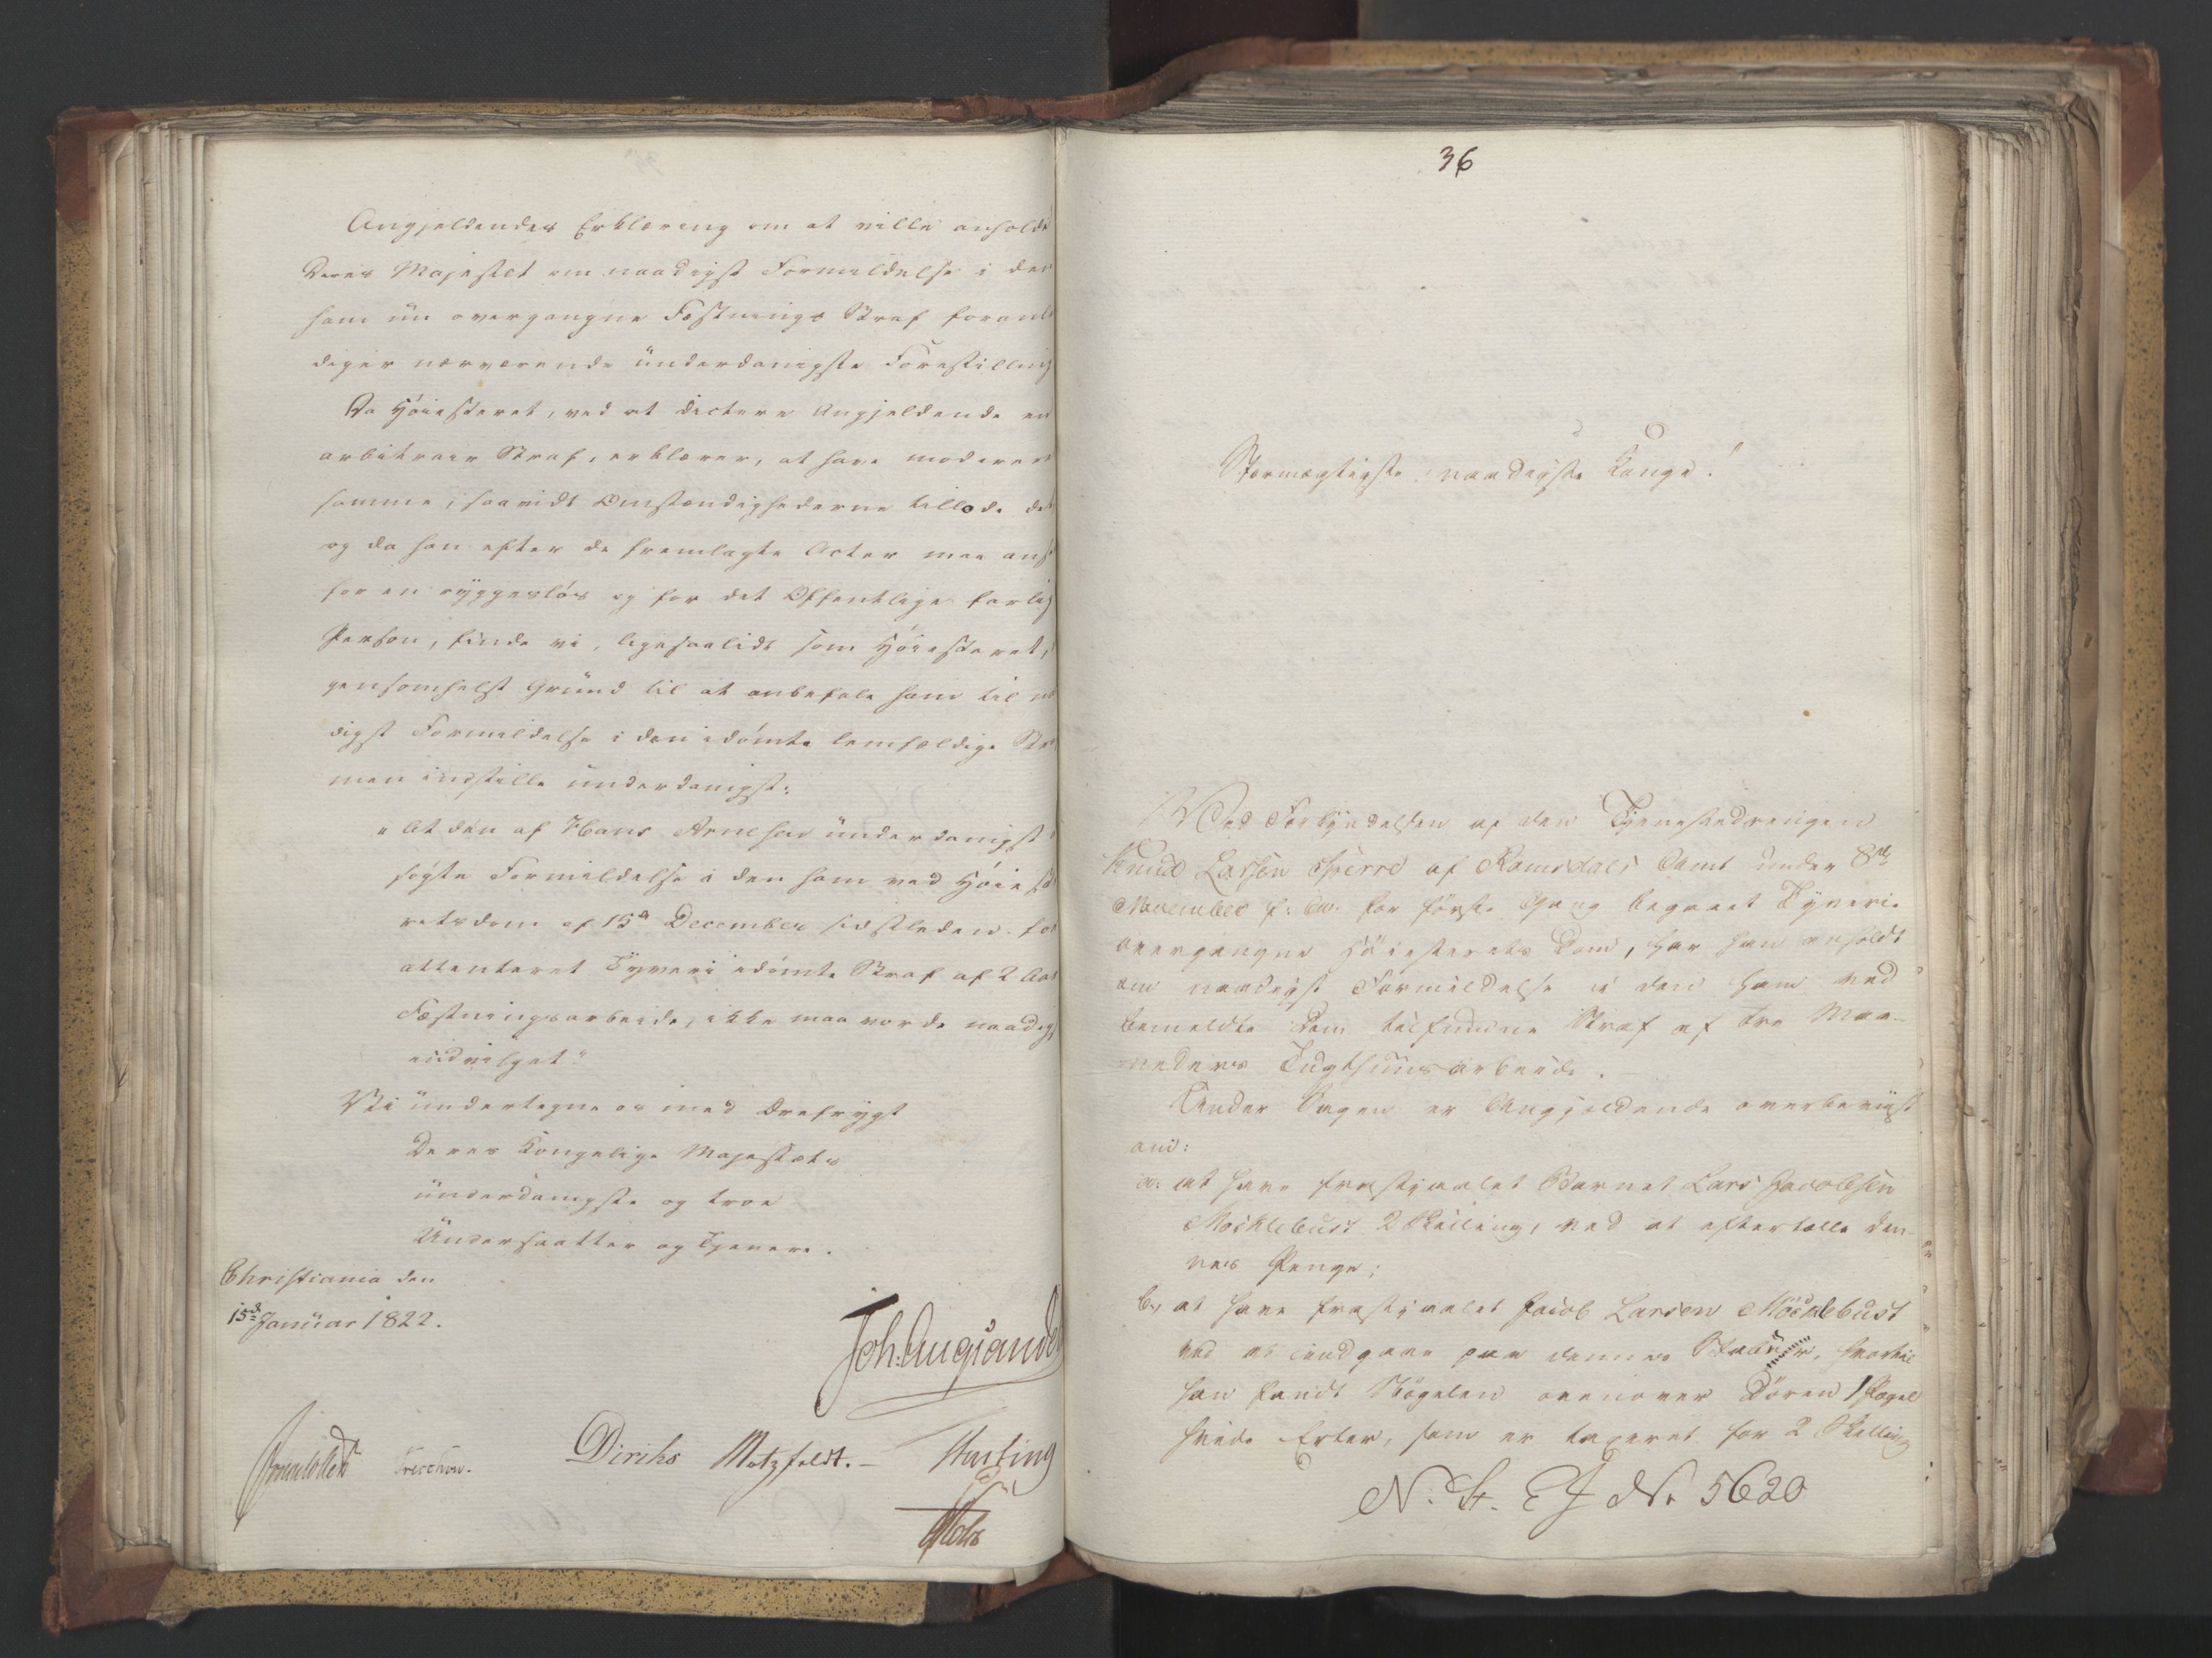 Angjeldendes Erklæring om at ville anholde
Deres Majestæt om naadigst Formildelse i den
ham nu overgangne Fæstnings Straf foranle
diger nærværende ünderdanigste Forestilling
Da Höiesteret, ved at dictere Angjeldende en
arbitrair Straf, erklærer, at have modereret
samme, saavidt Omstændighederne tillode det
og da han efter de fremlagte Acter maa ans
for en ryggeslös og for det Offentlige farlig
Person, finde vi, ligesaalidt som Höiesteret,
gensomhelst Gründ til at anbefale ham til n
digst Formildelse i den idömte lemfældige Str
men indstille ünderdanigst:
"At den af Hans Arnesen ünderdanigst
søgte Formildelse i den ham ved Höieste
retsdom af 15d December sidstleden for
attenteret Tyveri idömte Straf af 2 Aars
Fæstningsarbeide, ikke maa vorde naadigst
indvilget"
Vi ündertegne os med Ærefrygt
Deres Kongelige Majestæts
ünderdanigste og troe
Undersaatter og Tjenere.
Christiania den
15d Januar 1822.
Joh: Aug: Sande
Sommerhielm Treschow. Diriks Motzfeldt. Fasting
Holst
36
Stormægtigste, naadigste Konge!
Ved Forkyndelsen af den Tjenestedrengen
Knud Larsen Sperre af Romsdals Amt under 8de
November f: A: for förste Gang begaaet Tyverie
overgangne Höiesterets Dom, har han anholdt
om naadigst Formildelse i den ham ved
bemeldte Dom tilfundne Straf af tre Maa-
neders Tugthuusarbeide.
Under Sagen er Angjeldende overbeviist
om:
a: at have frastjaalet Barnet Lars Jacobsen
Mocklebust 2 Skilling, ved at eftertælle den-
nes Penge;
b., at have frastjaalet Jacob Larsen Möcklebust
ved at indgaae paa dennes Stabur, hvortil
han fandt Nögelen ovenover Dören 1 Pægel
hvide Erter, som er taxeret for 2 Skilling
N. St. E J No 5620